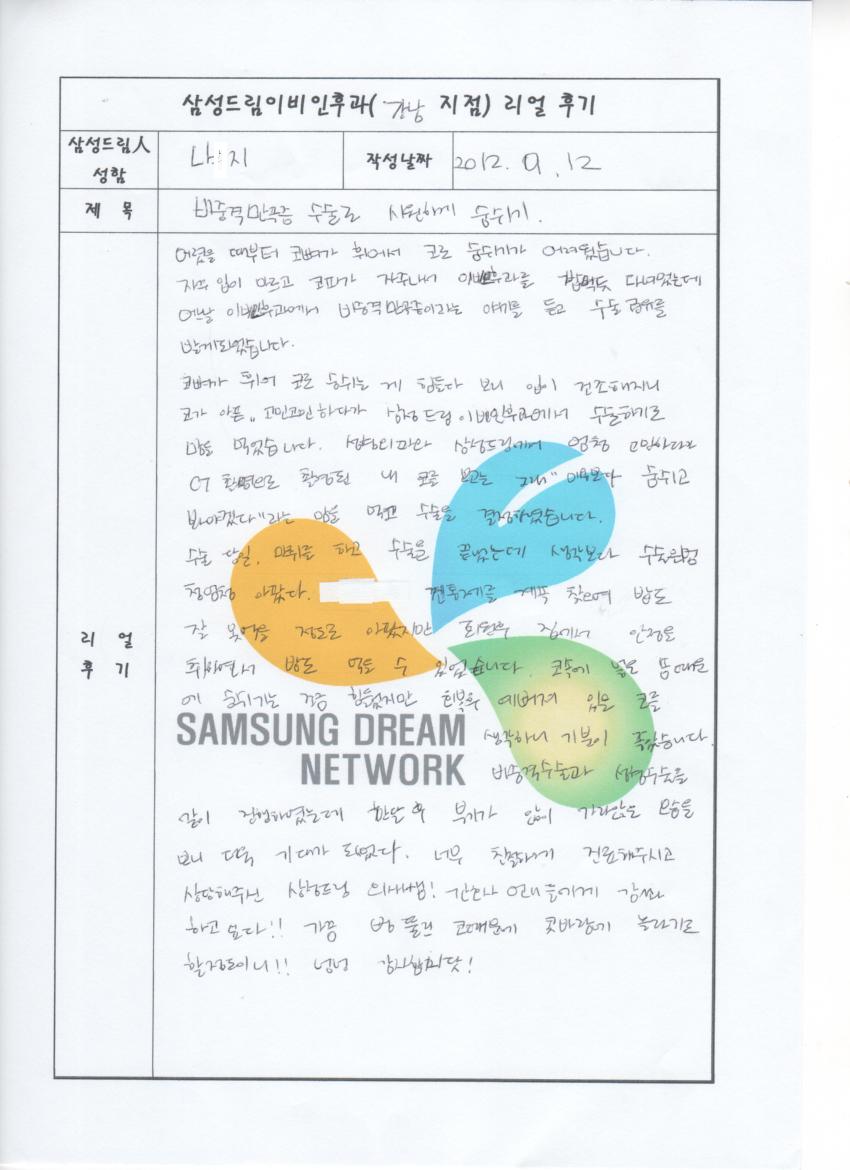 삼성드림이비인후과( 강남 지점) 리얼 후기
삼성드림人
성함
나 지
작성날짜
2012. 9. 12
제 목
비중격만곡증 수술로 시원하게 숨쉬기.
리 얼
후 기
어렸을 때부터 코뼈가 휘어서 코로 숨쉬기가 어려웠습니다.
자주 입이 마르고 코피가 자주나서 이비인후과를 밥먹듯 다녀었는데
옛날 이비인후과에서 비중격만곡증이라는 얘기를 듣고 수술 권유를
받게되었습니다.
코뼈가 휘어 코로 숨쉬는 게 힘들다 보니 입이 건조해지니
코가 아픔.. 고민고민하다가 삼성드림이비인후과에서 수술하기로
맘을 먹었습니다. 삼성드림에서 엄청 고민하다가
CT 촬영으로 촬영된 내 코를 보고는 그래" 숨쉬고
봐야겠다"라는 맘을 먹고 수술을 결정하였습니다.
수술 당일, 마취를 하고 수술을 끝냈는데 생각보다
아팠다. 진통제를 계속 찾으며 밥도
잘 못먹을 정도로 아팠지만 회원후 집에서 안정을
취하면서 밥도 먹을 수 있었습니다. 코속에 넣은 솜때문
에 숨쉬기는 조금 힘들었지만 회복후 예뻐져 있을 코를
SAMSUNG DREAM
NETWORK
생각하니 기분이 좋았습니다.
비중격수술과 성형수술을
같이 진행하였는데 한달 후 부기가 많이 가라앉은 모습을
보니 더욱 기대가 되었다. 너무 친절하게 진료해주시고
상담해주신 삼성드림 의사쌤! 간호사 언니들에게 감사
하고 싶다!! 가끔 뻥 뚫린 코때문에 콧바람에 놀라기도
할정도이니!! 넘넘 감사합니닷!